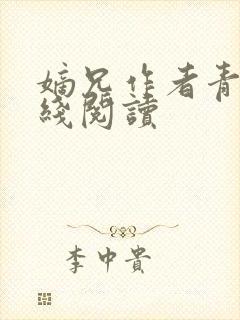 嫡兄作者青
綫閱讀
李中貴